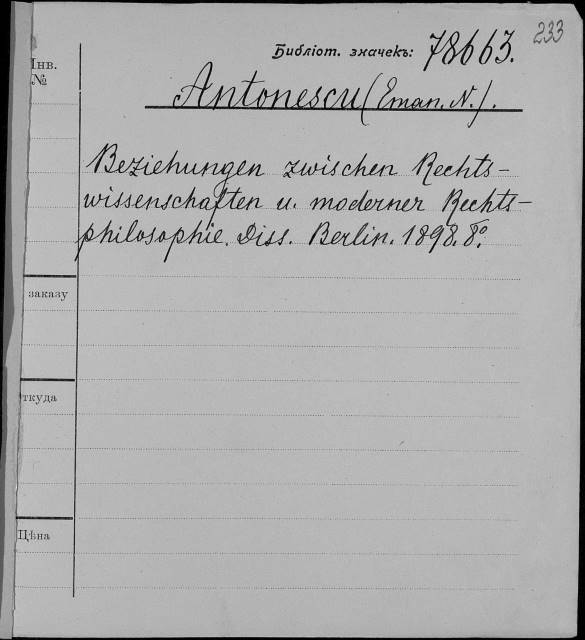 233
Библіот. значекъ: 78663.
Инв.
№
Antonescu (Eman. N.).
Beziehungen zwischen Rechts-
wissenschaften u. moderner Rechts-
philosophie. Diss. Berlin. 1898. 8º.
заказу
ткуда
Цѣна